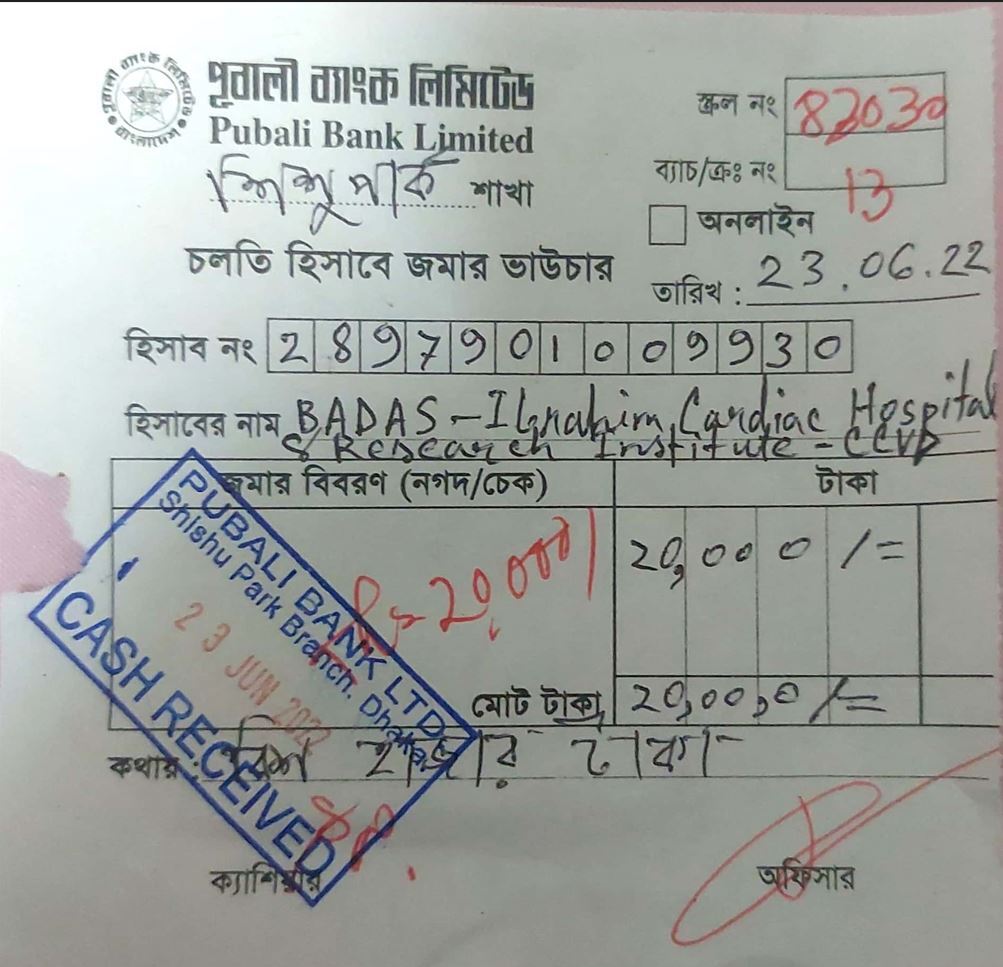 পূবালী ব্যাংক লিমিটেড
Pubali Bank Limited
শিশু পার্ক শাখা
স্ক্রল নং 82030
ব্যাচ/ক্রঃ নং 13
অনলাইন
চলতি হিসাবে জমার ভাউচার
তারিখ : 23.06.22
হিসাব নং 2897901009930
হিসাবের নাম BADAS - Ibrahim Cardiac Hospital
& Research Institute - CCVD
জমার বিবরণ (নগদ/চেক) টাকা
20,000/=
20,000/
মোট টাকা 20,000/=
কথায় : বিশ হাজার টাকা
PUBALI BANK LTD.
Shishu Park Branch. Dhaka.
23 JUN 2022
CASH RECEIVED
ক্যাশিয়ার
অফিসার